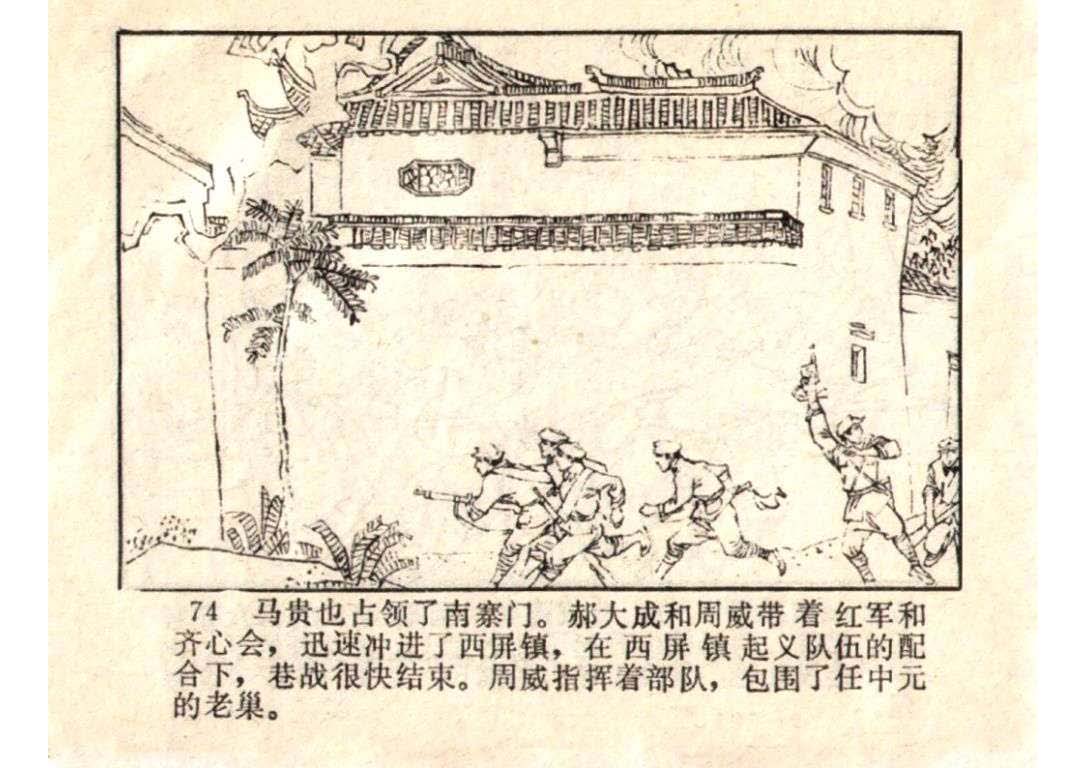 74 马贵也占领了南寨门。郝大成和周威带着红军和
齐心会，迅速冲进了西屏镇，在西屏镇起义队伍的配
合下，巷战很快结束。周威指挥着部队，包围了任中元
的老巢。